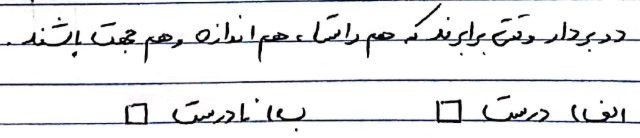 دو بردار وقتی برابرند که هم راستا، هم اندازه و هم جهت باشند.
الف) درست □ ب) نادرست □